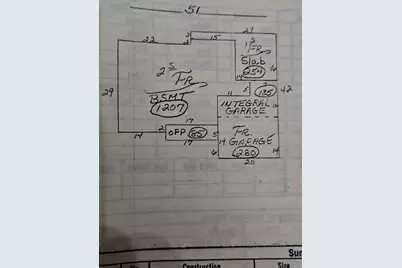 51
22 2 2 15 21
1 S FR
Slab
254
2 S FR
BSMT
1207
29
14 5 7
135 42
11
INTEGRAL
GARAGE
17
14 2 OFP 85 5
17
FR.
GARAGE
280
6 14 14
20
Construction Size